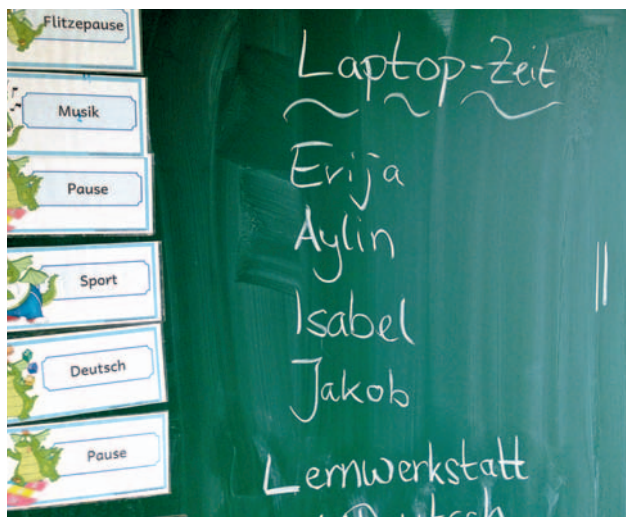 Flitzepause
Musik
Pause
Sport
Deutsch
Pause
Laptop-Zeit
Erija
Aylin
Isabel
Jakob
Lernwerkstatt
Deutsch